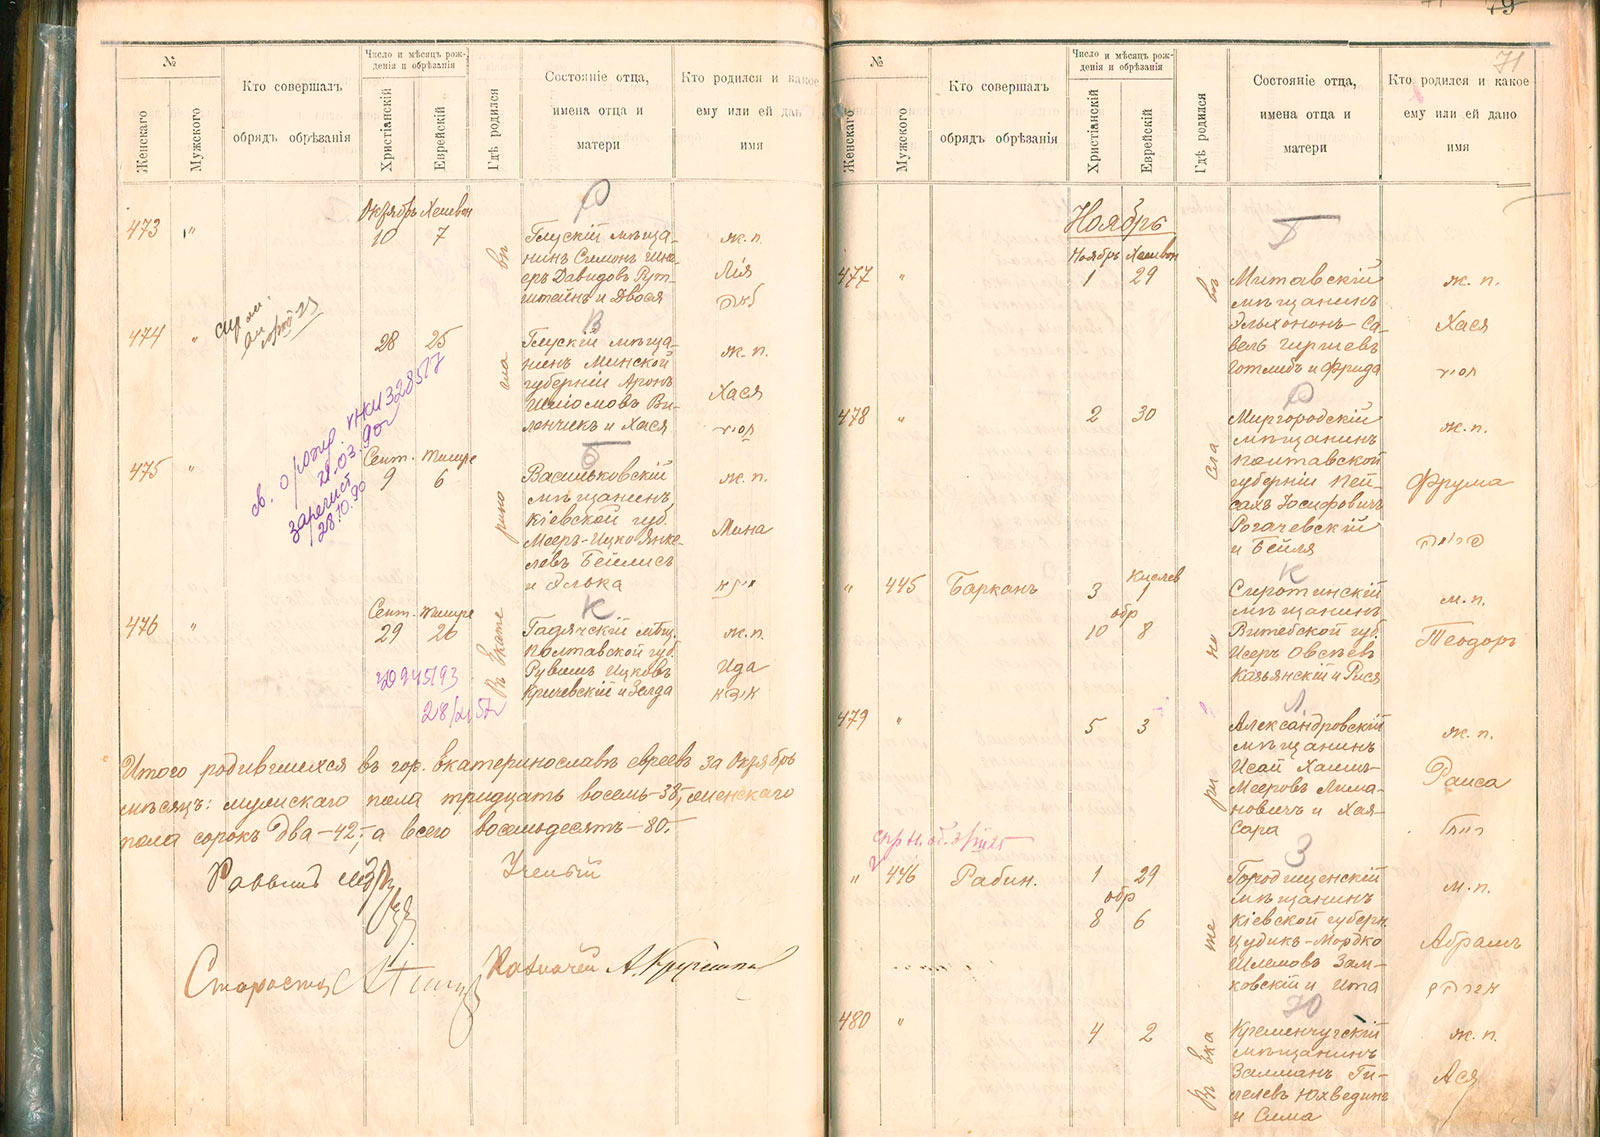 №
Женскаго
Мужского
Кто совершалъ
обрядъ обрѣзанія
Число и мѣсяцъ рож-
денія и обрѣзанія
Христіанскій
Еврейскій
Гдѣ родился
Состояніе отца,
имена отца и
матери
Кто родился и какое
ему или ей дано
имя
473 "
Октябрь Хешвон
10 7
Глускій мѣща-
нинъ Симон
Давидовъ Рут-
штейнъ и Двося
ж. п.
Лія
474 "
28 25
Глускій мѣща-
нинъ Минской
губерніи Аронъ
Шліомовъ Ви-
ленчикъ и Хася
ж. п.
Хася
св. о рожд. ЖИ 328577
21.03.90
зарегист
28.10.90
475 "
Сент. Тишре
9 6
Васильковскій
мѣщанинъ
Кіевской губ.
Мееръ-Ицко Янке-
левъ Бейлисъ
и Элька
ж. п.
Мина
476 "
Сент. Тишре
29 26
Гадячскій мѣщ.
Полтавской губ.
Рувимъ Ицковъ
Кричевскій и Зелда
ж. п.
Ида
въ Екате рино сла въ
Итого родившихся въ гор. Екатеринославѣ евреевъ за Октябрь
мѣсяцъ: мужскаго пола тридцать восемь-38, женскаго
пола сорокъ два-42, а всего восемьдесятъ-80.
Раввинъ
Ученый
Староста
Казначей
79
71
№
Женскаго
Мужского
Кто совершалъ
обрядъ обрѣзанія
Число и мѣсяцъ рож-
денія и обрѣзанія
Христіанскій
Еврейскій
Гдѣ родился
Состояніе отца,
имена отца и
матери
Кто родился и какое
ему или ей дано
имя
Ноябрь
Ноябрь Хешвон
477 "
1 29
Митавскій
мѣщанинъ
Эльхононъ-Са-
вель Гиршевъ
Готлибъ и Фрида
ж. п.
Хася
478 "
2 30
Миргородскій
мѣщанинъ
Полтавской
губерніи Пей-
сахъ Іосифовичъ
Рогачевскій
и Бейля
ж. п.
Фрума
פרומה
" 445 Барканъ
Кислев
3 1
обр
10 8
Сиротинскій
мѣщанинъ
Витебской губ.
Исеръ Овсѣевъ
Казьянскій и Рися
м. п.
Теодоръ
479 "
5 3
Александровскій
мѣщанинъ
Исай Хаимъ-
Мееровъ Лима-
новичъ и Хая-
Сара
ж. п.
Раиса
" 446 Рабин.
1 29
обр
8 6
Городищенскій
мѣщанинъ
Кіевской губерн.
Цудикъ-Мордко
Шлемовъ Зам-
ковскій и Ита
м. п.
Абрамъ
אברהם
480 "
4 2
Кременчугскій
мѣщанинъ
Залманъ Ги-
лелевъ Юхвединъ
и Сима
ж. п.
Ася
въ Ека те ри но сла въ